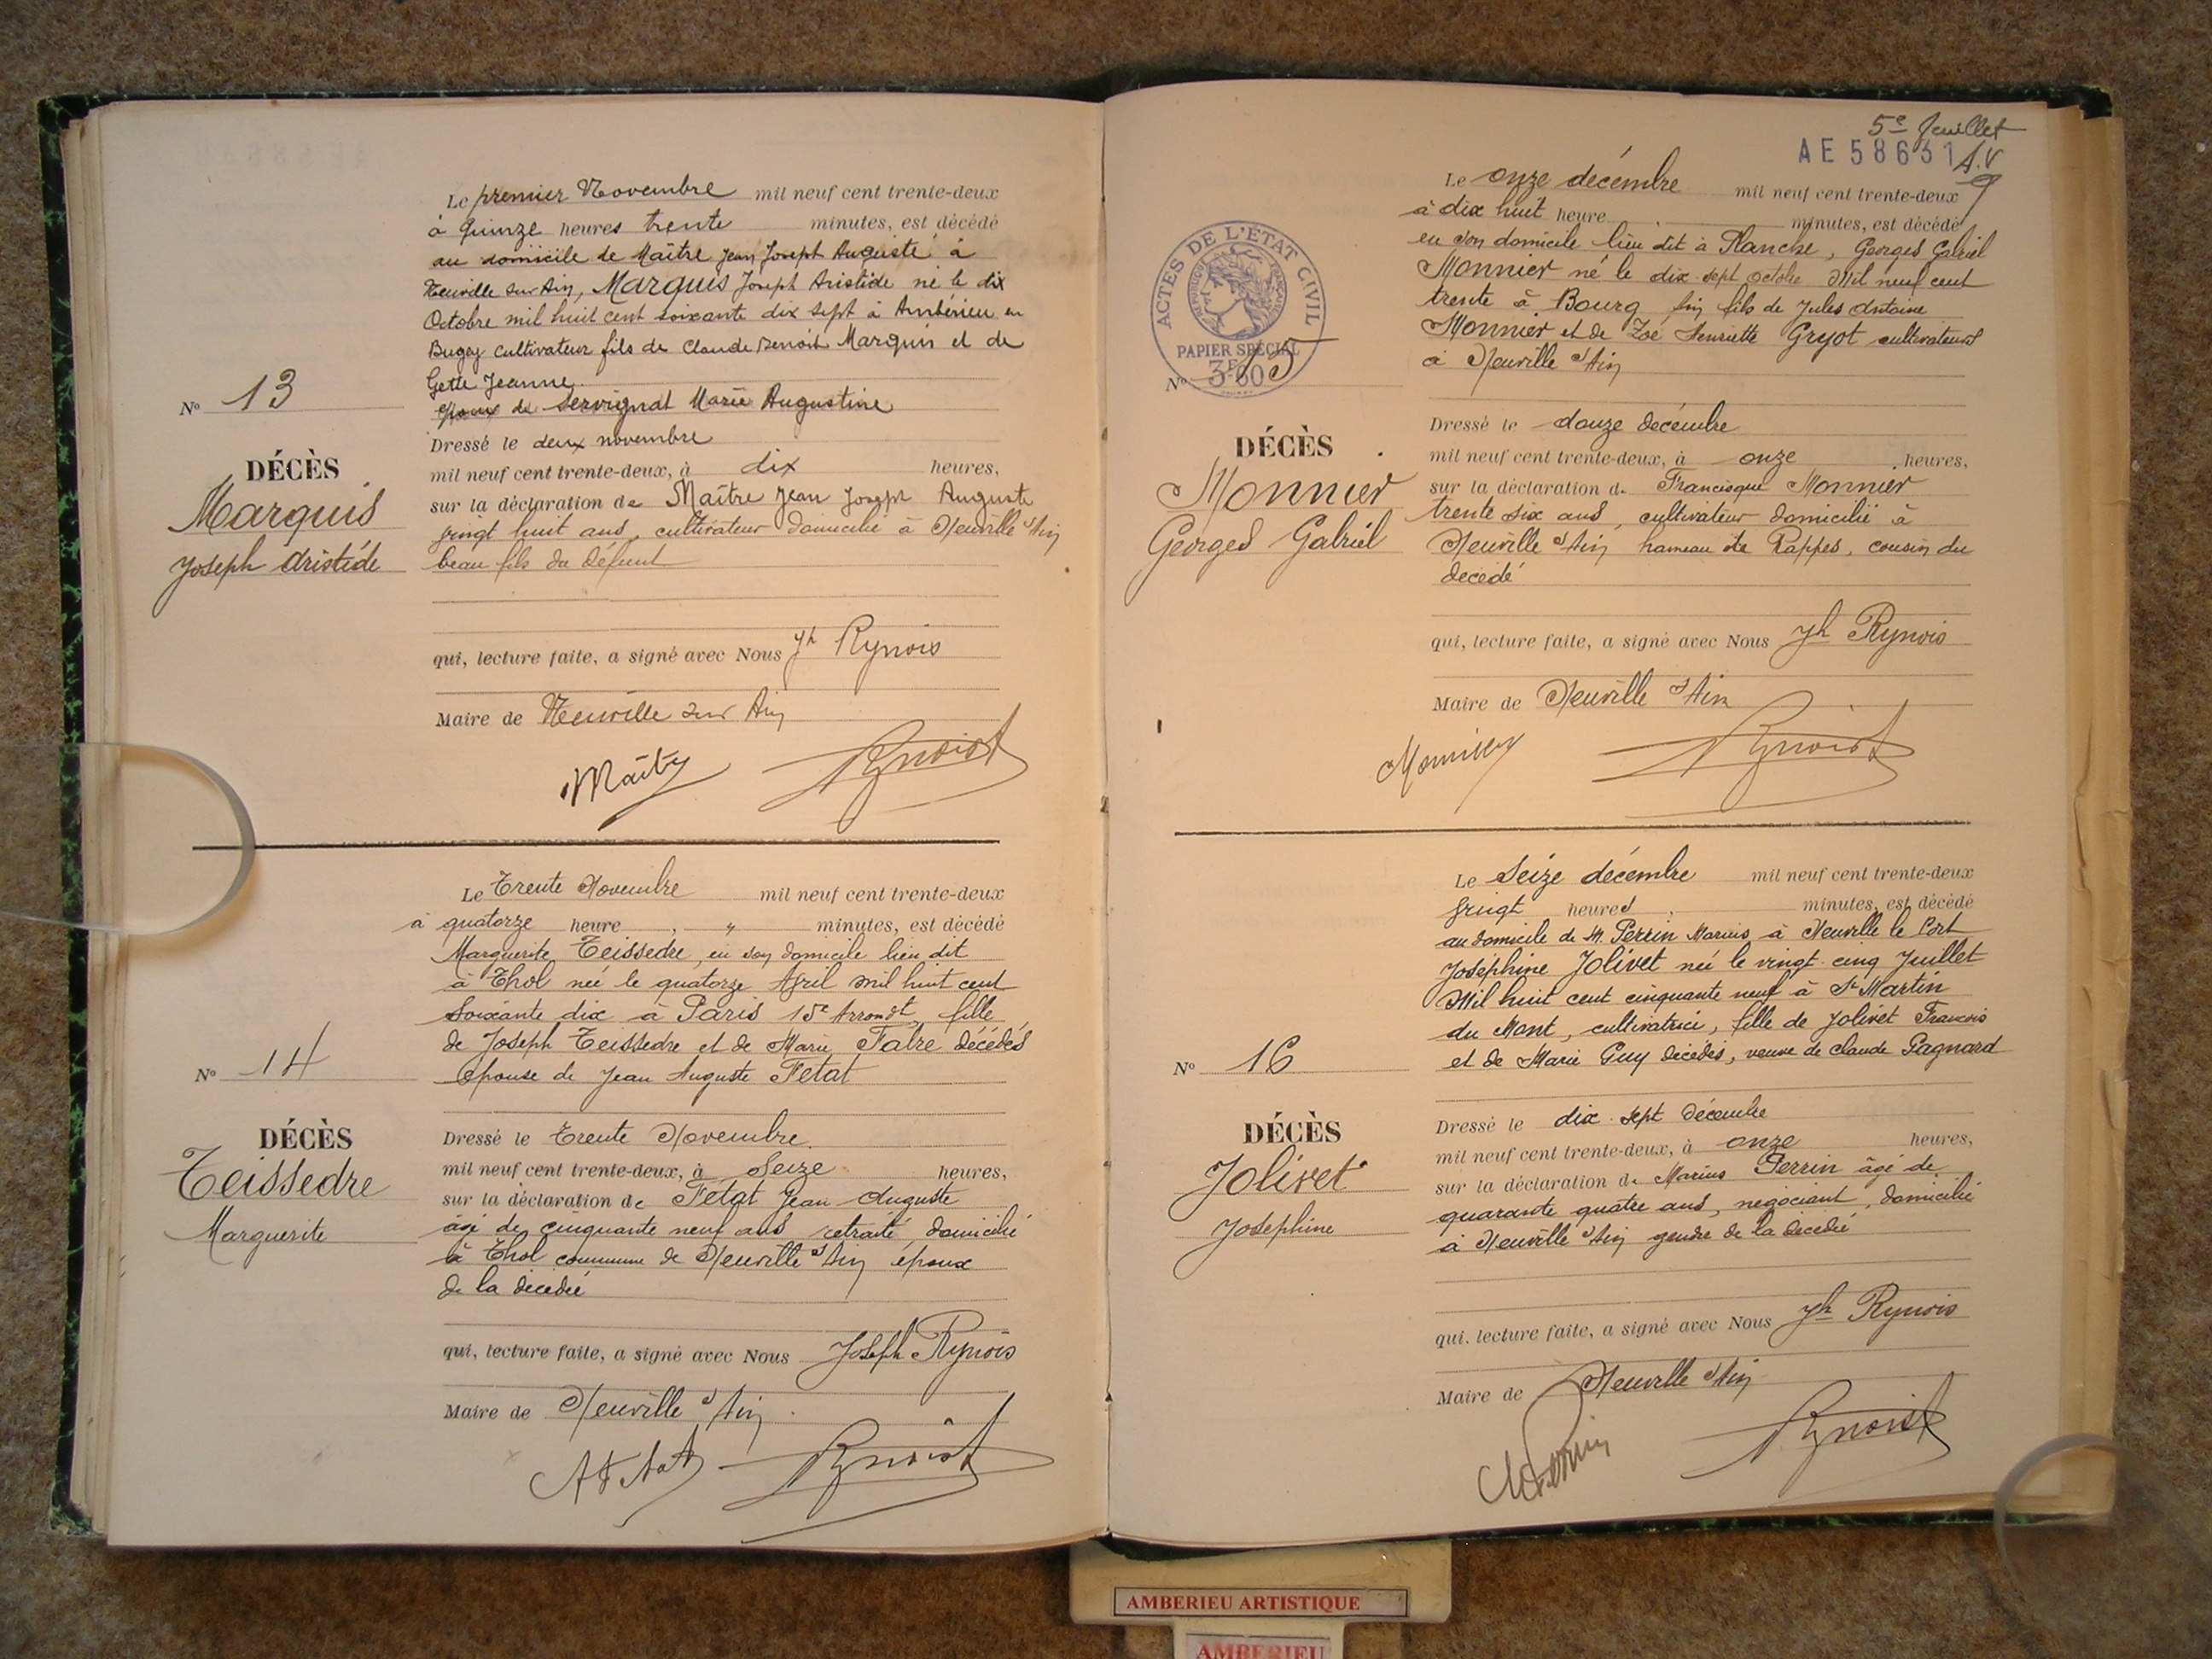 Le premier Novembre mil neuf cent trente-deux
à quinze heures trente minutes, est décédé
au domicile de Maître Jean Joseph Auguste à
Neuville sur Ain, Marquis Joseph Aristide né le dix
Octobre mil huit cent soixante dix sept à Ambérieu en
Bugey cultivateur fils de Claude Benoit Marquis et de
Gette Jeanne
époux de Servignat Marie Augustine
N° 13
Dressé le deux novembre
DÉCÈS
mil neuf cent trente-deux, à dix heures,
Marquis
sur la déclaration de Maître Jean Joseph Auguste
vingt huit ans, cultivateur domicilié à Neuville s/Ain
Joseph Aristide
beau fils du défunt
qui, lecture faite, a signé avec Nous Jh Rynois
Maire de Neuville sur Ain
Le Trente Novembre mil neuf cent trente-deux
à quatorze heure , " minutes, est décédé
Marguerite Teissedre, en son domicile lieu dit
à Thol née le quatorze Avril mil huit cent
soixante dix à Paris 15e Arrondt, fille
de Joseph Teissedre et de Marie Fabre décédés
épouse de Jean Auguste Fétat
N° 14
DÉCÈS
Dressé le trente Novembre
Teissedre
mil neuf cent trente-deux, à Seize heures,
sur la déclaration de Fétat Jean Auguste
Marguerite
âgé de cinquante neuf ans retraité, domicilié
à Thol commune de Neuville s/Ain époux
de la décédée
qui, lecture faite, a signé avec Nous Joseph Rynois
Maire de Neuville s/Ain
5e feuillet
AE 58631
A.V
Le onze décembre mil neuf cent trente-deux
à dix huit heure minutes, est décédé
en son domicile lieu dit à Planche, Georges Gabriel
Monnier né le dix-sept octobre Mil neuf cent
trente à Bourg fils de Jules Antoine
Monnier et de Zoé Henriette Gryot cultivateurs
à Neuville s/Ain
ACTES DE L'ÉTAT CIVIL
PAPIER SPÉCIAL
3F60
N° 15
Dressé le douze décembre
DÉCÈS
mil neuf cent trente-deux, à onze heures,
Monnier
sur la déclaration de Francisque Monnier
trente six ans, cultivateur domicilié à
Georges Gabriel
Neuville s/Ain hameau de Rappes, cousin du
décédé
qui, lecture faite, a signé avec Nous Jh Rynois
Maire de Neuville s/Ain
Le Seize décembre mil neuf cent trente-deux
vingt heures minutes, est décédé
au domicile de M. Perrin Marius à Neuville le Port
Joséphine Jolivet née le vingt-cinq Juillet
Mil huit cent cinquante neuf à St Martin
du Mont, cultivatrice, fille de Jolivet François
et de Marie Guy décédés, veuve de Claude Pagnard
N° 16
DÉCÈS
Dressé le dix-sept Décembre
mil neuf cent trente-deux, à onze heures,
Jolivet
sur la déclaration de Marius Perrin âgé de
quarante quatre ans, négociant, domicilié
Joséphine
à Neuville s/Ain gendre de la décédée
qui, lecture faite, a signé avec Nous Jh Rynois
Maire de Neuville s/Ain
AMBERIEU ARTISTIQUE
AMBERIEU